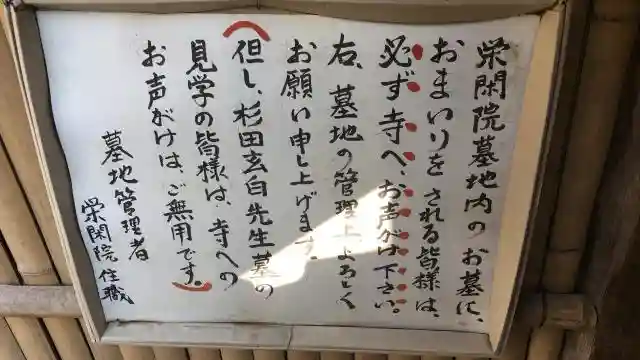 栄閑院墓地内のお墓に、
おまいりをされる皆様は、
必ず寺へ、お声がけ下さい。
右、墓地の管理上よろしく
お願い申し上げます。
(但し、杉田玄白先生墓の
見学の皆様は、寺への
お声がけは、ご無用です。)
墓地管理者
栄閑院住職